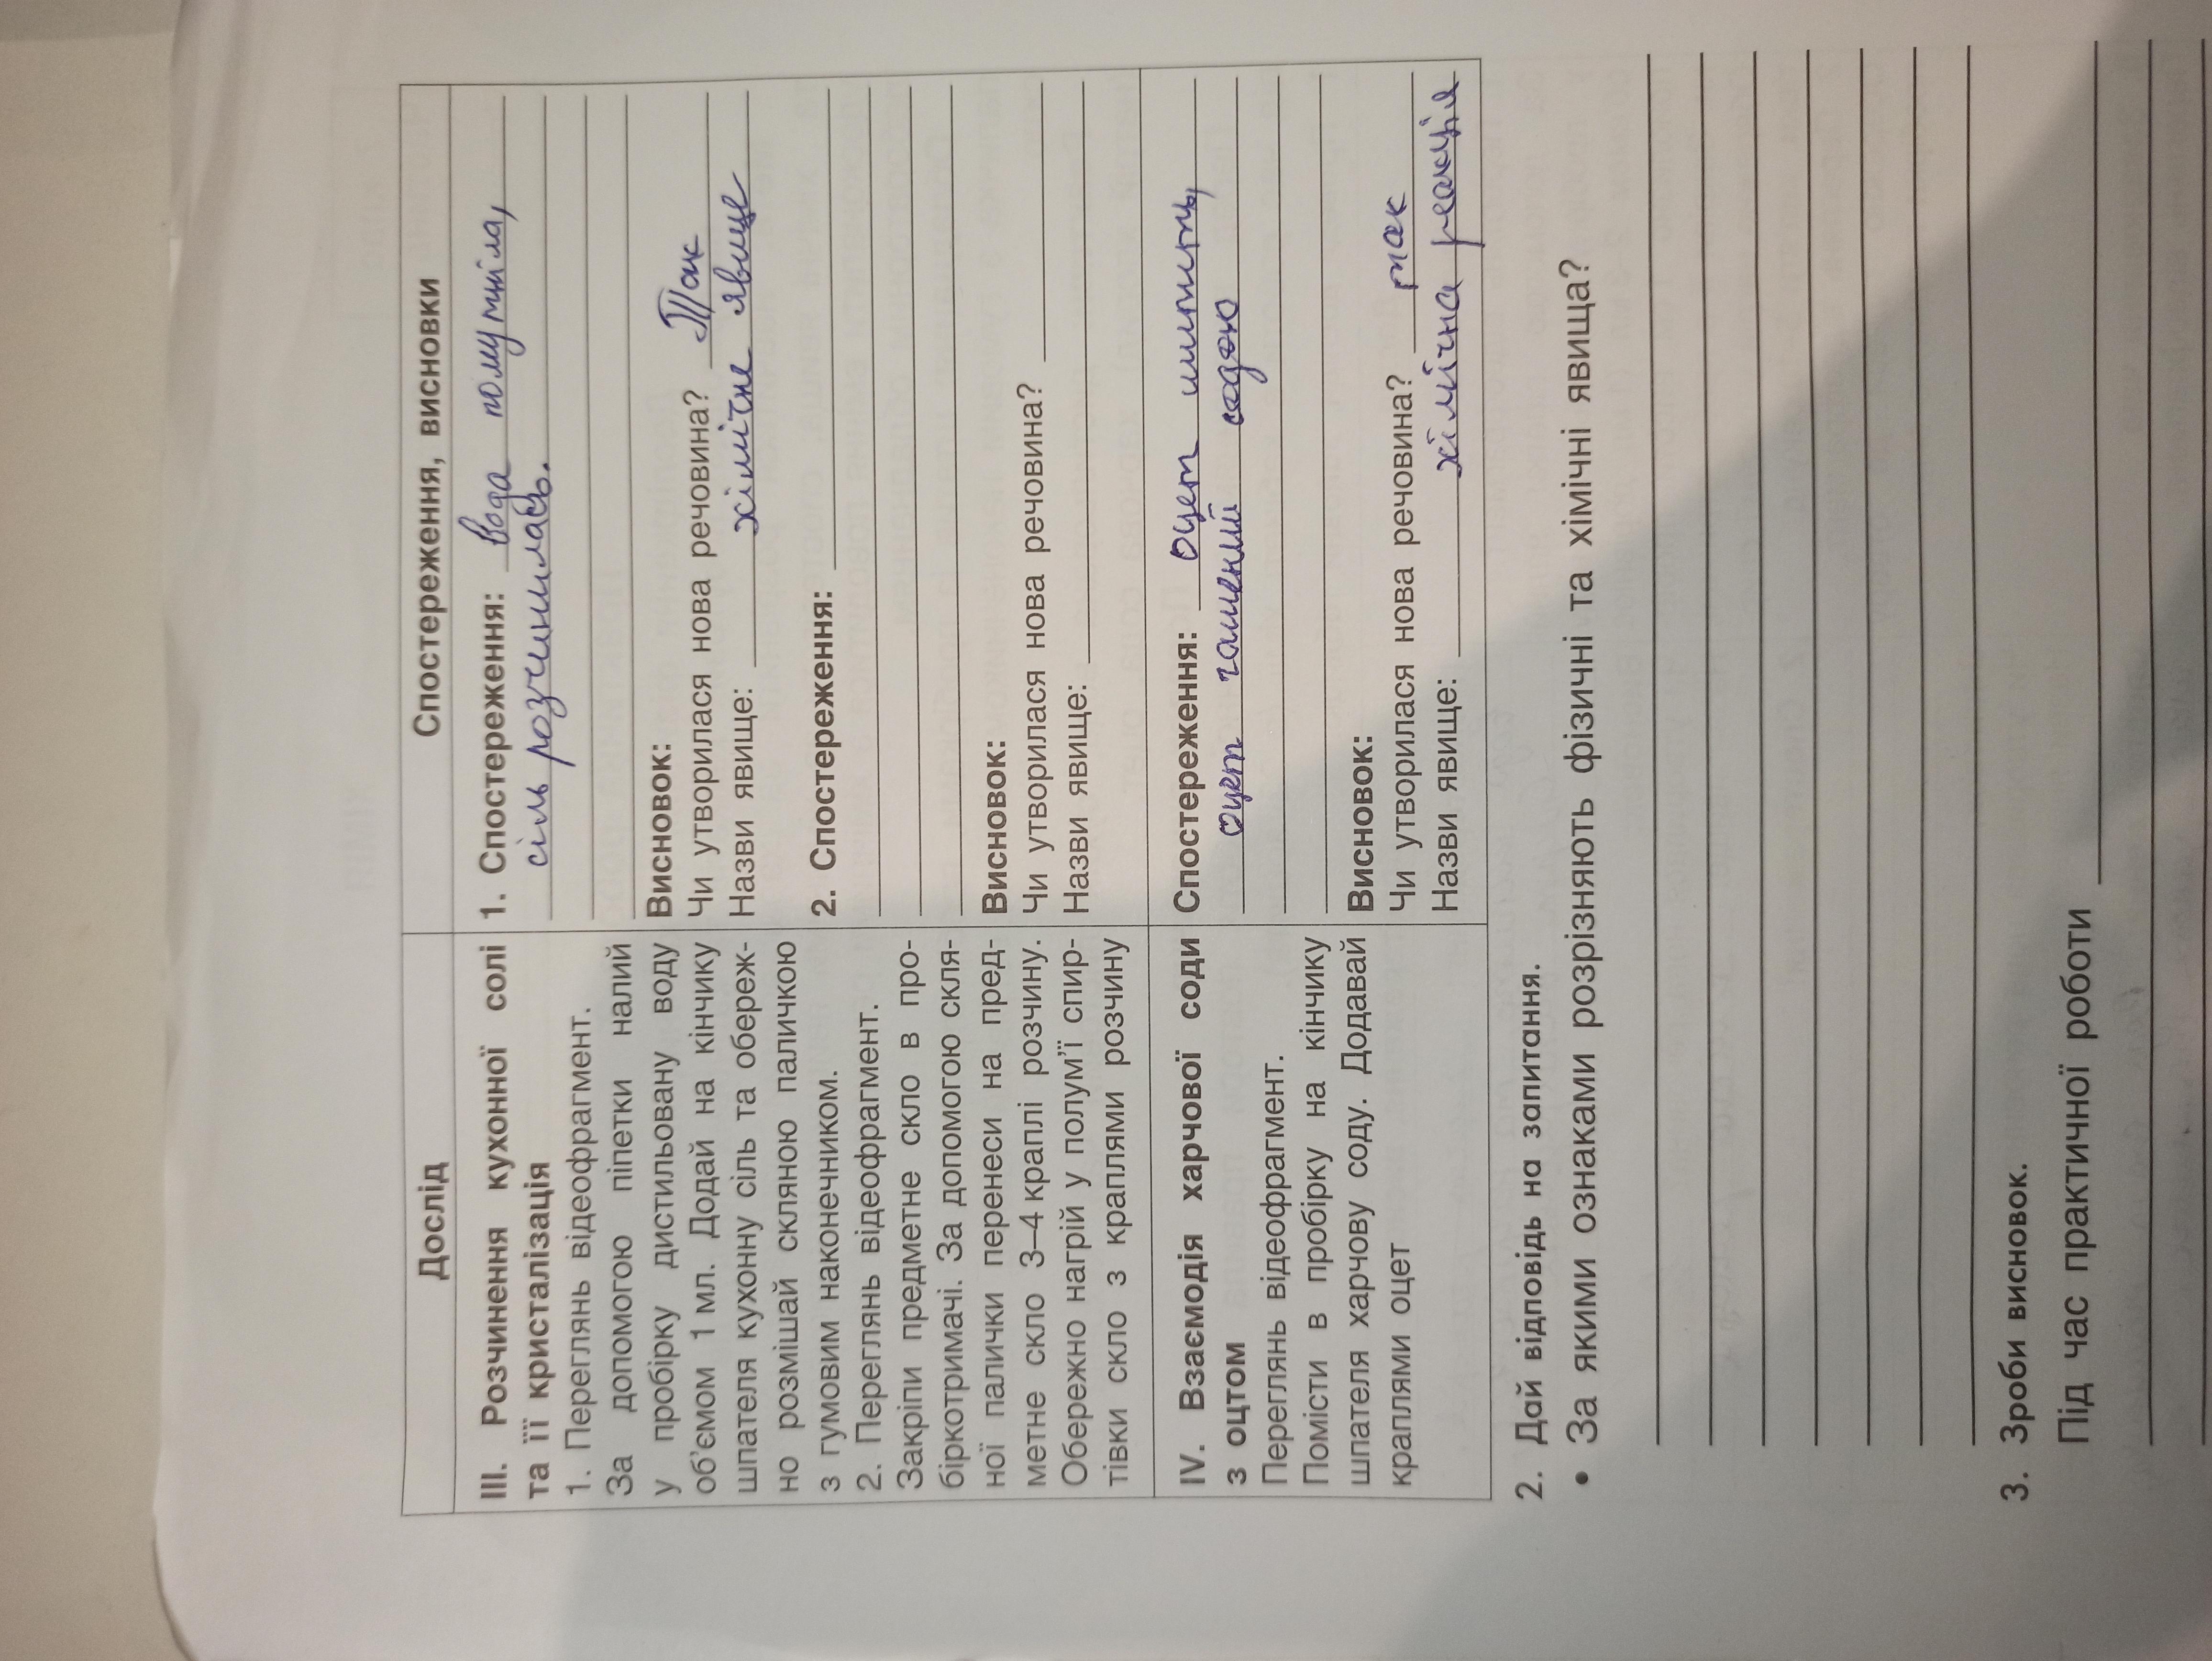 Дослід
Спостереження, висновки
III. Розчинення кухонної солі
та її кристалізація
1. Переглянь відеофрагмент.
За допомогою піпетки налий
у пробірку дистильовану воду
об'ємом 1 мл. Додай на кінчику
шпателя кухонну сіль та обереж-
но розмішай скляною паличкою
з гумовим наконечником.
2. Переглянь відеофрагмент.
Закріпи предметне скло в про-
біркотримачі. За допомогою скля-
ної палички перенеси на пред-
метне скло 3–4 краплі розчину.
Обережно нагрій у полум'ї спир-
тівки скло з краплями розчину
1. Спостереження: Вода помутніла,
сіль розчинилась.
Висновок:
Чи утворилася нова речовина? Так
Назви явище: хімічне явище
2. Спостереження:
Висновок:
Чи утворилася нова речовина?
Назви явище:
IV. Взаємодія харчової соди
з оцтом
Переглянь відеофрагмент.
Помісти в пробірку на кінчику
шпателя харчову соду. Додавай
краплями оцет
Спостереження: Оцет шипить,
оцет гашений содою
Висновок:
Чи утворилася нова речовина? так
Назви явище: хімічна реакція
2. Дай відповідь на запитання.
• За якими ознаками розрізняють фізичні та хімічні явища?
3. Зроби висновок.
Під час практичної роботи